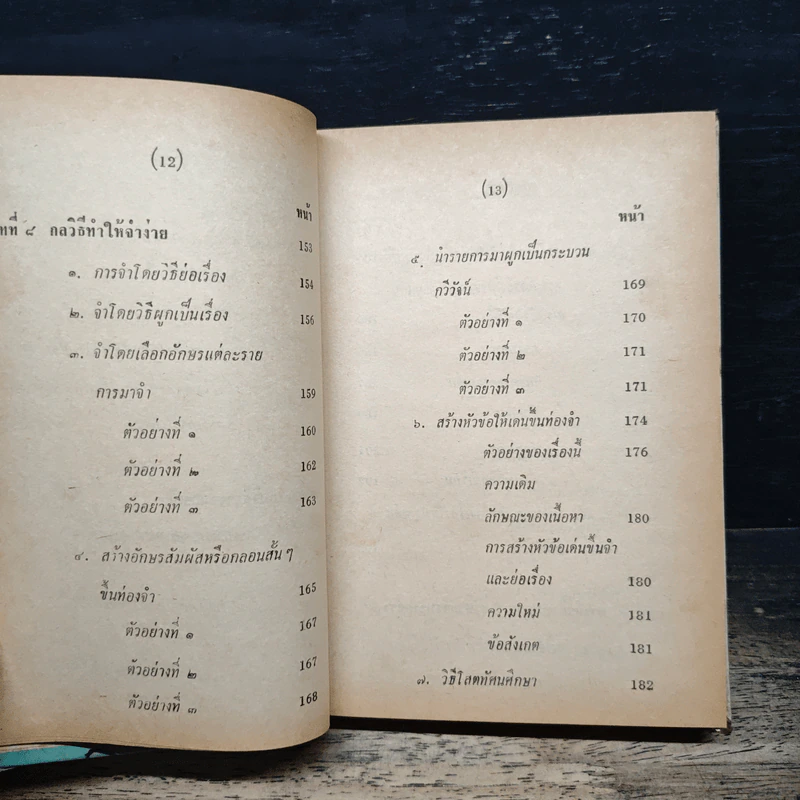 (12)
หน้า
ทที่ ๘ กลวิธีทำให้จำง่าย 153
๑. การจำโดยวิธีย่อเรื่อง 154
๒. จำโดยวิธีผูกเป็นเรื่อง 156
๓. จำโดยเลือกอักษรแต่ละราย
การมาจำ 159
ตัวอย่างที่ ๑ 160
ตัวอย่างที่ ๒ 162
ตัวอย่างที่ ๓ 163
๔. สร้างอักษรสัมผัสหรือกลอนสั้น ๆ
ขึ้นท่องจำ 165
ตัวอย่างที่ ๑ 167
ตัวอย่างที่ ๒ 167
ตัวอย่างที่ ๓ 168
(13)
หน้า
๕. นำรายการมาผูกเป็นกระบวน
กวีวัจน์ 169
ตัวอย่างที่ ๑ 170
ตัวอย่างที่ ๒ 171
ตัวอย่างที่ ๓ 171
๖. สร้างหัวข้อให้เด่นขึ้นท่องจำ 174
ตัวอย่างของเรื่องนี้ 176
ความเดิม
ลักษณะของเนื้อหา 180
การสร้างหัวข้อเด่นขึ้นจำ
และย่อเรื่อง 180
ความใหม่ 181
ข้อสังเกต 181
๗. วิธีโสตทัศนศึกษา 182